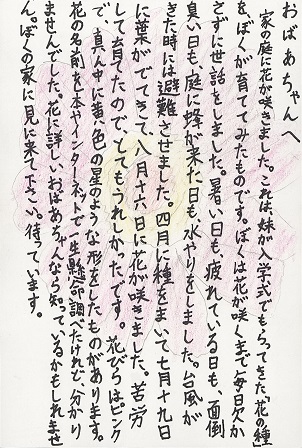 おばあちゃんへ
家の庭に花が咲きました。これは、妹が入学式でもらってきた「花の種」
をぼくが育ててみたものです。ぼくは花が咲くまで毎日欠か
さずに世話をしました。暑い日も、疲れている日も、面倒
臭い日も、庭に蜂が来た日も、水やりをしました。台風が
きた時には避難させました。四月に種をまいて七月十九日
に葉がでてきて、八月十六日に花が咲きました。苦労
して育てたので、とてもうれしかったです。花びらはピンク
で、真ん中に黄色の星のような形をしたものがあります。
花の名前を本やインターネットで一生懸命調べたけれど、分かり
ませんでした。花に詳しいおばあちゃんなら知っているかもしれませ
ん。ぼくの家に見に来て下さい。待っています。